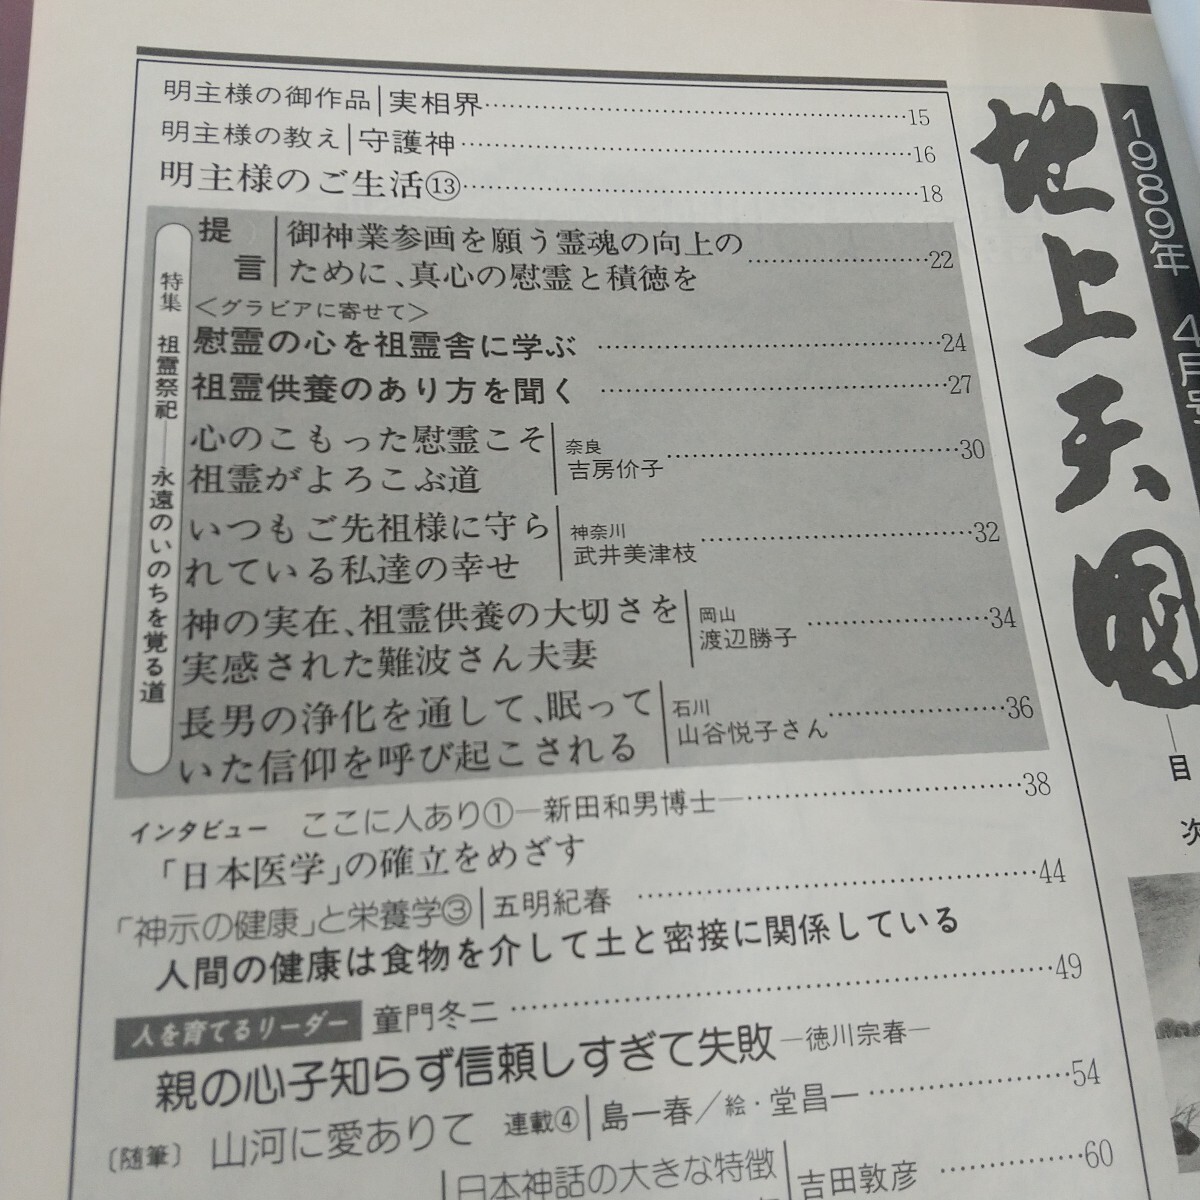 明主様の御作品 実相界……15
明主様の教え 守護神……16
明主様のご生活⑬……18
特集 祖霊祭祀――永遠のいのちを覚る道
提言
御神業参画を願う霊魂の向上の
ために、真心の慰霊と積徳を……22
＜グラビアに寄せて＞
慰霊の心を祖霊舎に学ぶ……24
祖霊供養のあり方を聞く……27
心のこもった慰霊こそ
祖霊がよろこぶ道
奈良
吉房价子……30
いつもご先祖様に守ら
れている私達の幸せ
神奈川
武井美津枝……32
神の実在、祖霊供養の大切さを
実感された難波さん夫妻
岡山
渡辺勝子……34
長男の浄化を通して、眠って
いた信仰を呼び起こされる
石川
山谷悦子さん……36
インタビュー ここに人あり①―新田和男博士―……38
「日本医学」の確立をめざす
「神示の健康」と栄養学③ 五明紀春……44
人間の健康は食物を介して土と密接に関係している
人を育てるリーダー 童門冬二……49
親の心子知らず信頼しすぎて失敗―徳川宗春―
〔随筆〕 山河に愛ありて 連載④ 島一春／絵・堂昌一……54
日本神話の大きな特徴
吉田敦彦……60
1989年 4月号
地上天國
―目次